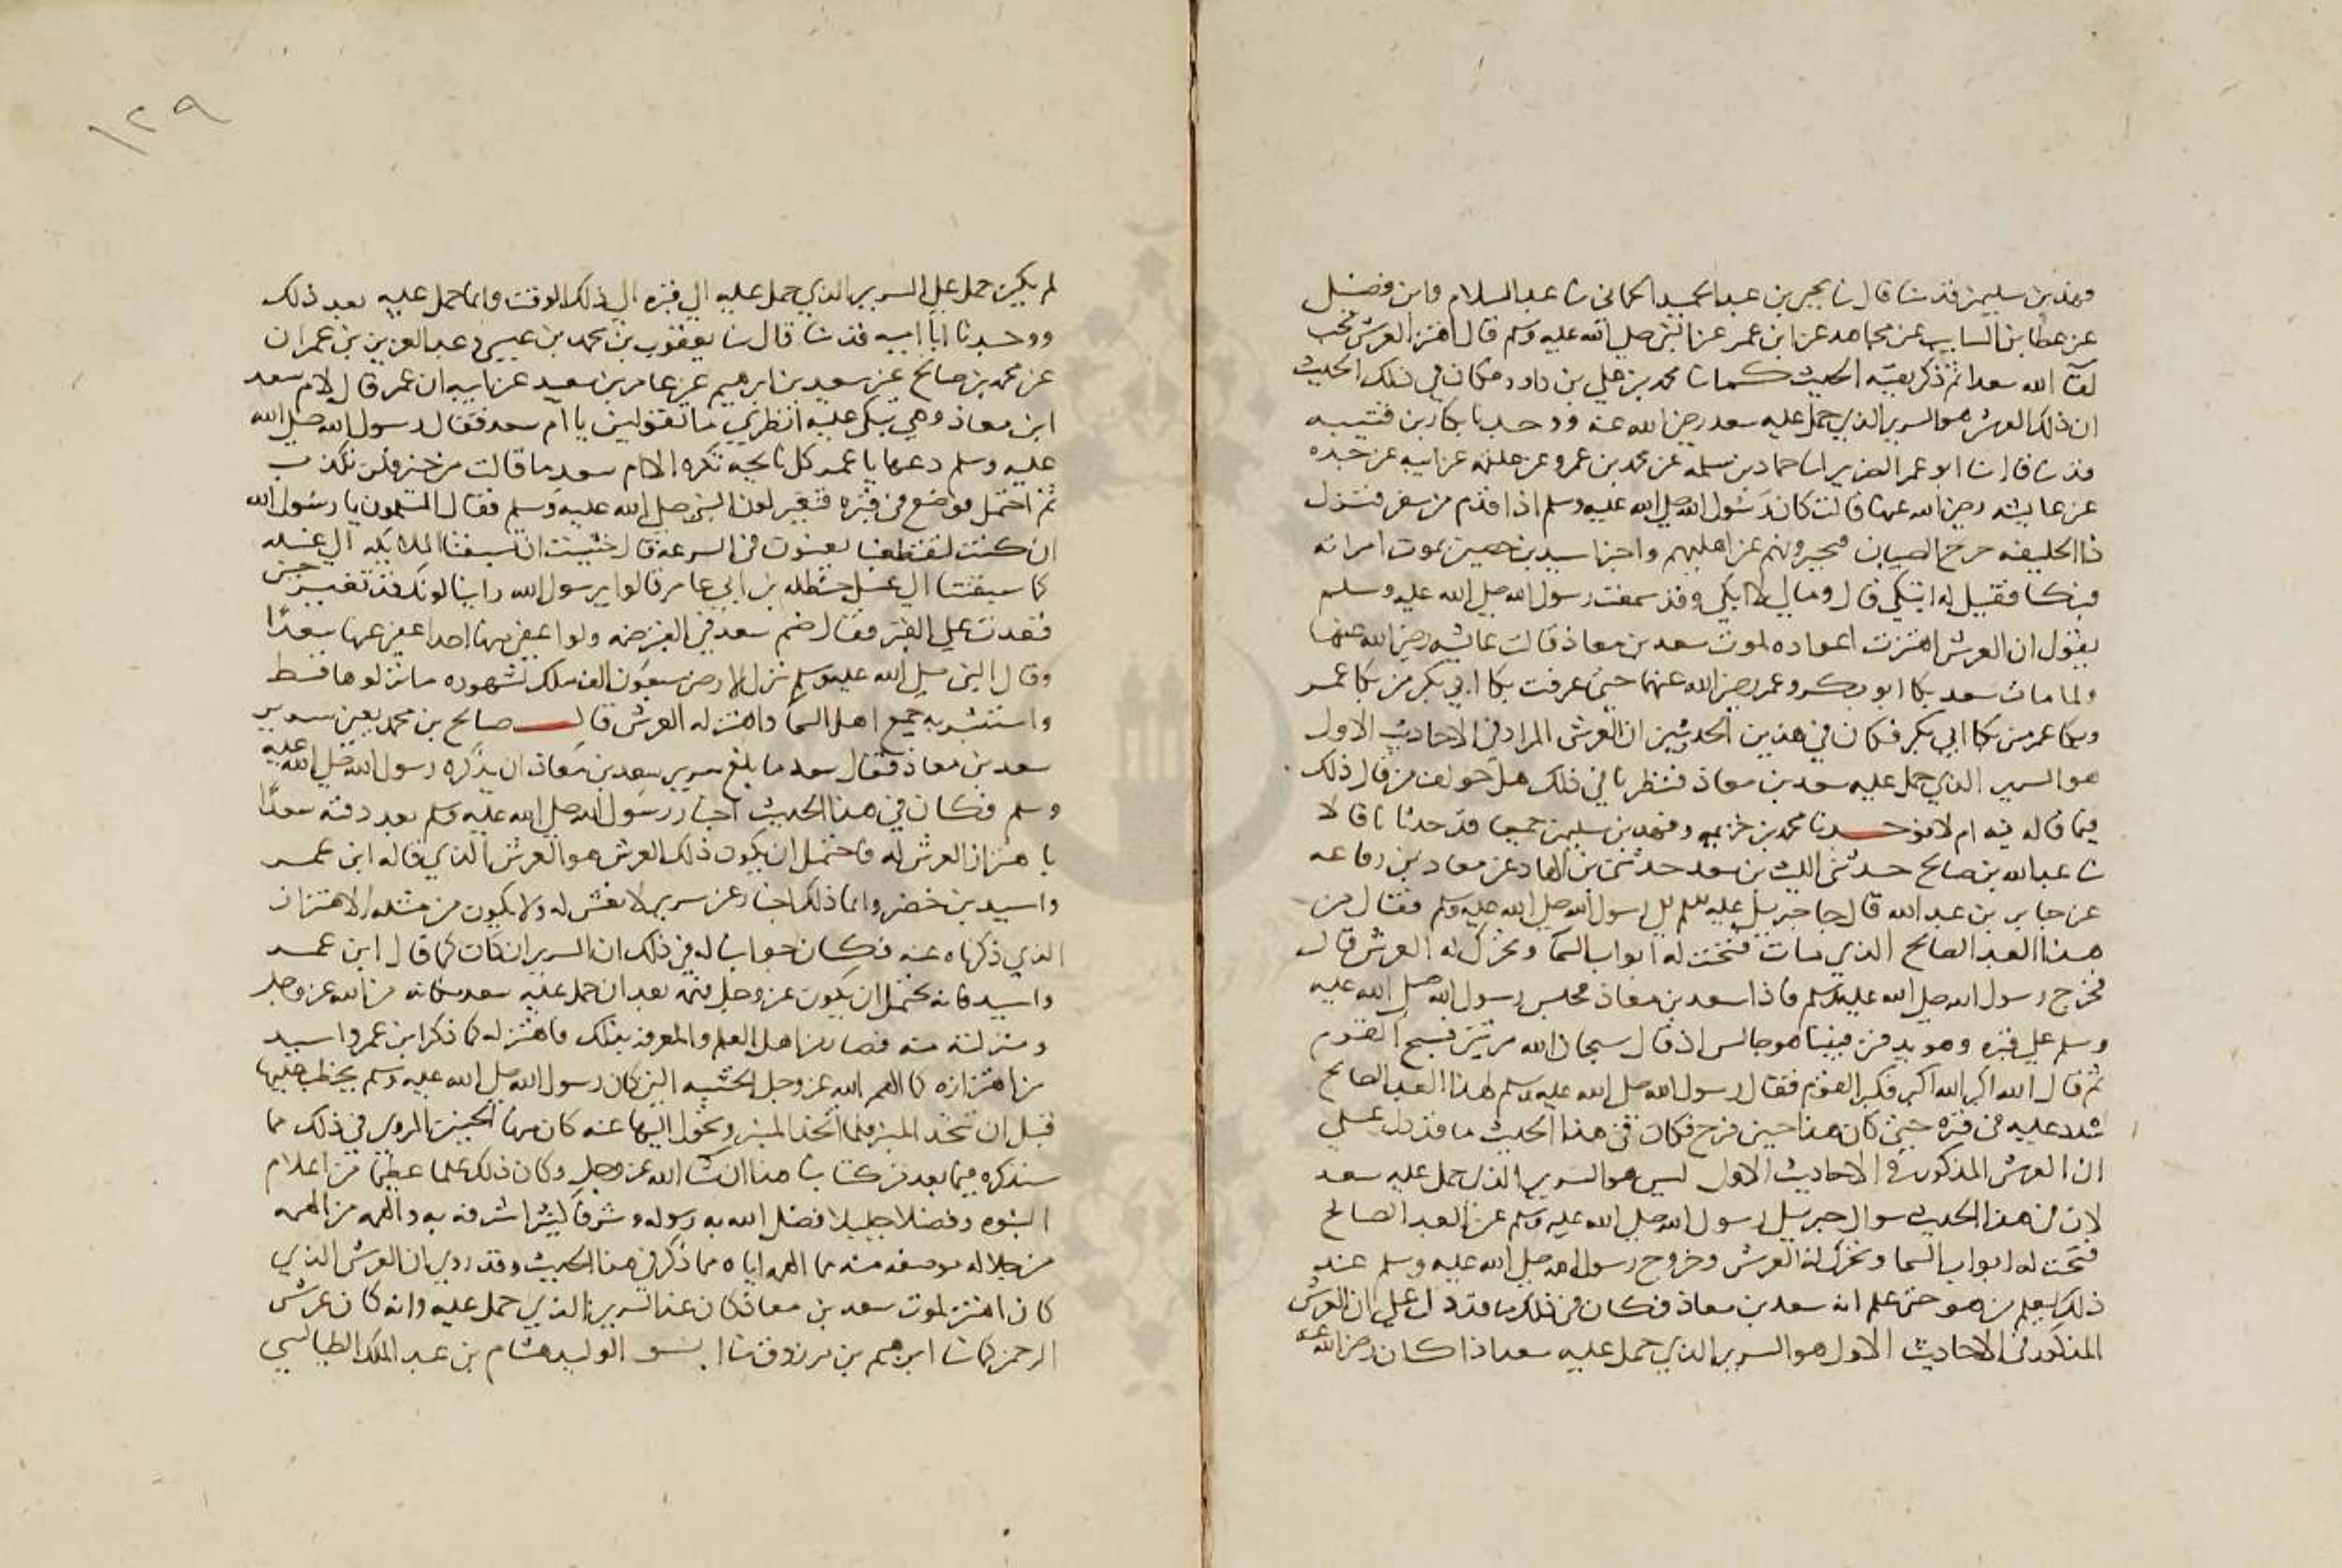 وفهد بن سليمن قد ثنا قال ثنا يحيى بن عبد الحميد الحماني ثنا عبد السلام وابن فضيل
عن عطا بن السايب عن مجاهد عن ابن عمر عن النبي صلى الله عليه وسلم قال اهتز العرش لحب
لقآ الله سعدا ثم ذكر بقية الحديث كما ثنا محمد بن علي بن داود فكان في ذلك الحديث
ان ذلك العرش هو السرير الذي حمل عليه سعد رضي الله عنه ووجدنا بكار بن قتيبه
قد ثنا قال ثنا ابو عمر الضرير انا حماد بن سلمة عن محمد بن عمرو عن علقمه عن ابيه عن جده
عن عايشه رضي الله عنها قالت كان رسول الله صلى الله عليه وسلم اذا قدم من سفر فنزل
ذا الحليفه خرج الصبيان فيخبرونهم عن اهليهم واخبر اسيد بن حضير بموت امراته
فبكا فقيل له اتبكي قال ومالي لا ابكي وقد سمعت رسول الله صلى الله عليه وسلم
يقول ان العرش اهتزت اعواده لموت سعد بن معاذ قالت عايشه رضي الله عنها
ولما مات سعد بكا ابو بكر وعمر رضي الله عنهما حتى عرفت بكا ابي بكر من بكا عمر
وبكا عمر من بكا ابي بكر فكان في هذين الحديثين ان العرش المراد في الاحاديث الاول
هو السرير الذي حمل عليه سعد بن معاذ فنظرنا في ذلك هل خولف من قال ذلك
فيما قاله فيه ام لا فوجدنا محمد بن خزيمه وفهد بن سليمن جميعا قد حدثانا قالا
ثنا عبد الله بن صالح حدثني الليث بن سعد حدثني بن الهاد عن معاذ بن رفاعه
عن جابر بن عبد الله قال جا جبريل عليه السلم الى رسول الله صلى الله عليه وسلم فقال من
هذا العبد الصالح الذي مات فتحت له ابواب السمآ وتحرك له العرش قال
فخرج رسول الله صلى الله عليه وسلم فاذا سعد بن معاذ فجلس رسول الله صلى الله عليه
وسلم على قبره وهو يدفن فبينا هو جالس اذ قال سبحان الله مرتين فسبح القوم
ثم قال الله اكبر الله اكبر فكبر القوم فقال رسول الله صلى الله عليه وسلم لهذا العبد الصالح
شدد عليه في قبره حتى كان هذا حين فرج فكان في هذا الحديث ما قد دل على
ان العرش المذكور في الاحاديث الاول ليس هو السرير الذي حمل عليه سعد
لان في هذا الحديث سوال جبريل رسول الله صلى الله عليه وسلم عن العبد الصالح
فتحت له ابواب السما وتحرك له العرش وخروج رسول الله صلى الله عليه وسلم عند
ذلك ليعلم من هو حتى علم انه سعد بن معاذ فكان في ذلك ما قد دل على ان العرش
المذكور في الاحاديث الاول هو السرير الذي حمل عليه سعد اذا كان رضي الله عنه
١٢٩
لم يكن حمل على السرير الذي حمل عليه الى قبره الى ذلك الوقت وانما حمل عليه بعد ذلك
ووجدنا ابا اميه قد ثنا قال ثنا يعقوب بن محمد بن عيسى ثنا عبد العزيز بن عمران
عن محمد بن صالح عن سعد بن ابرهيم عن عامر بن سعيد عن ابيه ان عمر قال لام سعد
ابن معاذ وهي تبكي عليه انظري ما تقولين يا ام سعد فقال رسول الله صلى الله
عليه وسلم دعها يا عمر كل نايحه تكره الا ام سعد ما قالت من خير فلن تكذب
ثم احتمل فوضع في قبره فتغير لون النبي صلى الله عليه وسلم فقال المسلمون يا رسول الله
ان كنت لتقطعنا يعنون في السرعة قال خشيت ان تسبقنا الملايكه الى غسله
كما سبقتنا الى غسل حنظله بن ابي عامر قالوا يرسول الله راينا لونك قد تغير حين
قعدت على القبر فقال ضم سعد في القبر ضمه ولو اعفي منها احد اعفي عنها سعدًا
وقال النبي صلى الله عليه وسلم نزل الارض سبعون الف ملك لشهوده ما نزلوها قط
واستبشر به جميع اهل السمآ واهتز له العرش قال صالح بن محمد يعني سرير
سعد بن معاذ فقال سعد ما بلغ سرير سعد بن معاذ ان يذكره رسول الله صلى الله عليه
وسلم فكان في هذا الحديث اخبار رسول الله صلى الله عليه وسلم بعد دفنه سعدًا
باهتزاز العرش له فاحتمل ان يكون ذلك العرش هو العرش الذي قاله ابن عمر
واسيد بن خضير وانما ذلك اخبار عن سرير لا نفس له ولا يكون من مثله الاهتزاز
الذي ذكرناه عنه فكان جوابنا له في ذلك ان السرير ان كان كما قال ابن عمر
واسيد فانه يحتمل ان يكون عز وجل فهمه بعد ان حمل عليه سعد مكانه من الله عز وجل
ومنزلته منه فصار من اهل العلم والمعرفة بذلك فاهتز له كما ذكر ابن عمر واسيد
من اهتزازه كما الهم الله عز وجل الخشبه التي كان رسول الله صلى الله عليه وسلم يخطب عليها
قبل ان يتخذ المنبر فلما اتخذ المنبر وتحول اليها عنه كان منها الحنين المروي في ذلك مما
سنذكره فيما بعد من كتابنا هذا ان شآ الله عز وجل وكان ذلك علما عظيما من اعلام
النبوه وفضلا جليلا فضل الله به رسوله وشرفا كبيرا شرفه به والهم من الهمه
من جلاله موضعه منه مما الهمه اياه مما ذكر في هذا الحديث وقد روي ان العرش الذي
كان اهتز لموت سعد بن معاذ كان غير السرير الذي حمل عليه وانه كان عرش
الرحمن كما ثنا ابرهيم بن مرزوق ثنا ابو الوليد هشام بن عبد الملك الطيالسي